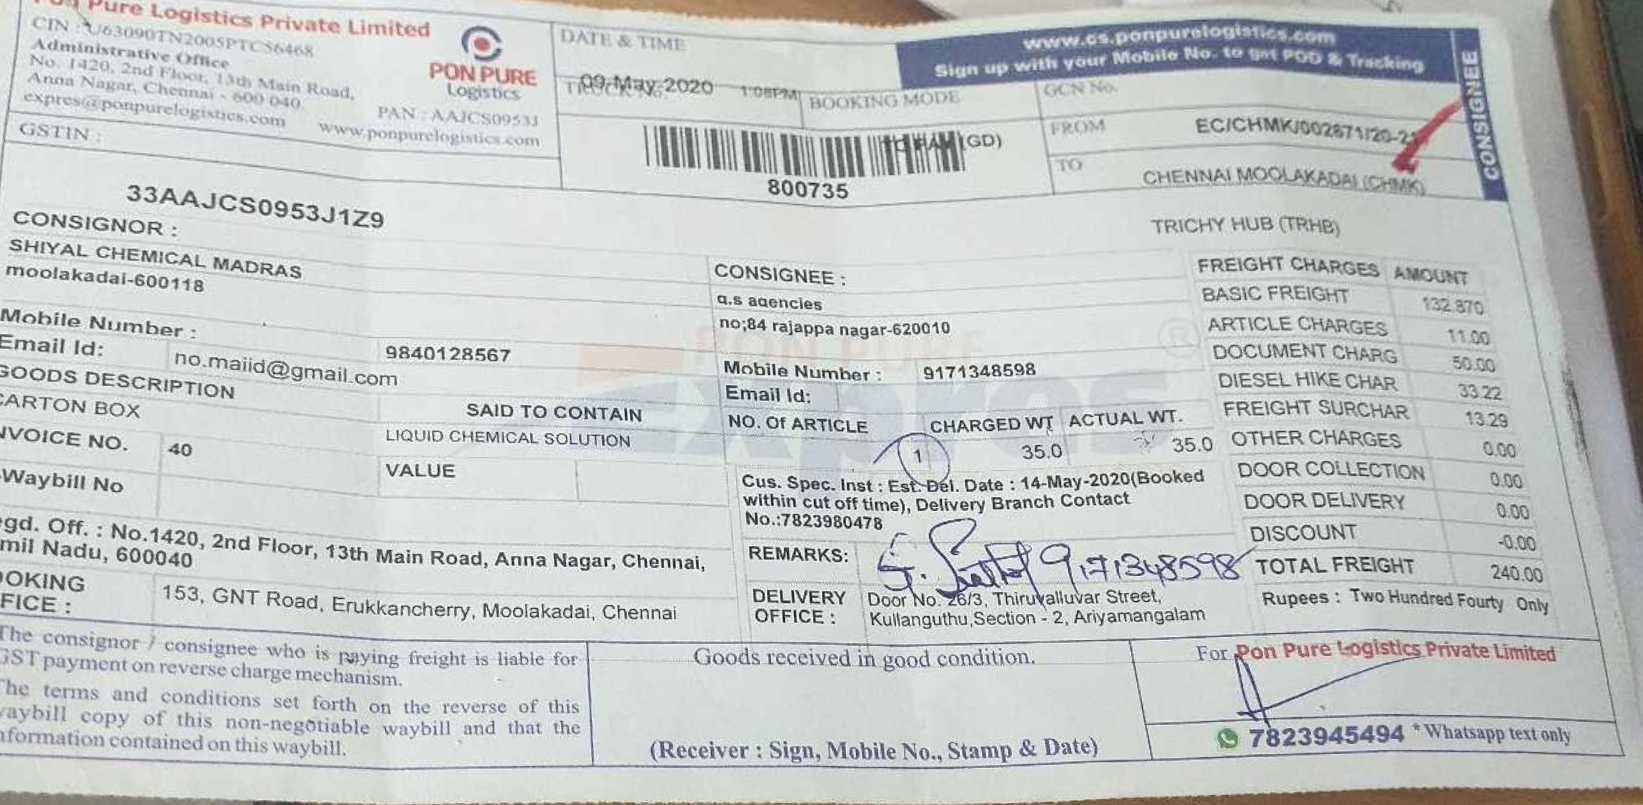 Pure Logistics Private Limited
CIN : U63090TN2005PTC56468
Administrative Office
No. 1420, 2nd Floor, 13th Main Road,
Anna Nagar, Chennai - 600 040.
expres@ponpurelogistics.com
PAN : AAJCS0953J
www.ponpurelogistics.com
PON PURE
Logistics
GSTIN :
33AAJCS0953J1Z9
DATE & TIME
09-May-2020 1:08PM
BOOKING MODE
(GD)
800735
www.cs.ponpurelogistics.com
Sign up with your Mobile No. to get POD & Tracking
CONSIGNEE
GCN No.
EC/CHMK/002871/20-21
FROM
CHENNAI MOOLAKADAI (CHMK)
TO
TRICHY HUB (TRHB)
CONSIGNOR :
SHIYAL CHEMICAL MADRAS
moolakadai-600118
Mobile Number : 9840128567
Email Id: no.maiid@gmail.com
CONSIGNEE :
a.s agencies
no;84 rajappa nagar-620010
Mobile Number : 9171348598
Email Id:
GOODS DESCRIPTION SAID TO CONTAIN
CARTON BOX LIQUID CHEMICAL SOLUTION
INVOICE NO. 40 VALUE
Waybill No
NO. Of ARTICLE CHARGED WT ACTUAL WT.
1 35.0 35.0
Cus. Spec. Inst : Est. Del. Date : 14-May-2020(Booked
within cut off time), Delivery Branch Contact
No.:7823980478
REMARKS: 9171348598
DELIVERY OFFICE : Door No. 26/3, Thiruvalluvar Street,
Kullanguthu,Section - 2, Ariyamangalam
FREIGHT CHARGES AMOUNT
BASIC FREIGHT 132.870
ARTICLE CHARGES 11.00
DOCUMENT CHARG 50.00
DIESEL HIKE CHAR 33.22
FREIGHT SURCHAR 13.29
OTHER CHARGES 0.00
DOOR COLLECTION 0.00
DOOR DELIVERY 0.00
DISCOUNT -0.00
TOTAL FREIGHT 240.00
Rupees : Two Hundred Fourty Only
gd. Off. : No.1420, 2nd Floor, 13th Main Road, Anna Nagar, Chennai,
mil Nadu, 600040
OOKING
FICE : 153, GNT Road, Erukkancherry, Moolakadai, Chennai
The consignor / consignee who is paying freight is liable for
GST payment on reverse charge mechanism.
The terms and conditions set forth on the reverse of this
waybill copy of this non-negotiable waybill and that the
nformation contained on this waybill.
Goods received in good condition.
(Receiver : Sign, Mobile No., Stamp & Date)
For Pon Pure Logistics Private Limited
7823945494 *Whatsapp text only